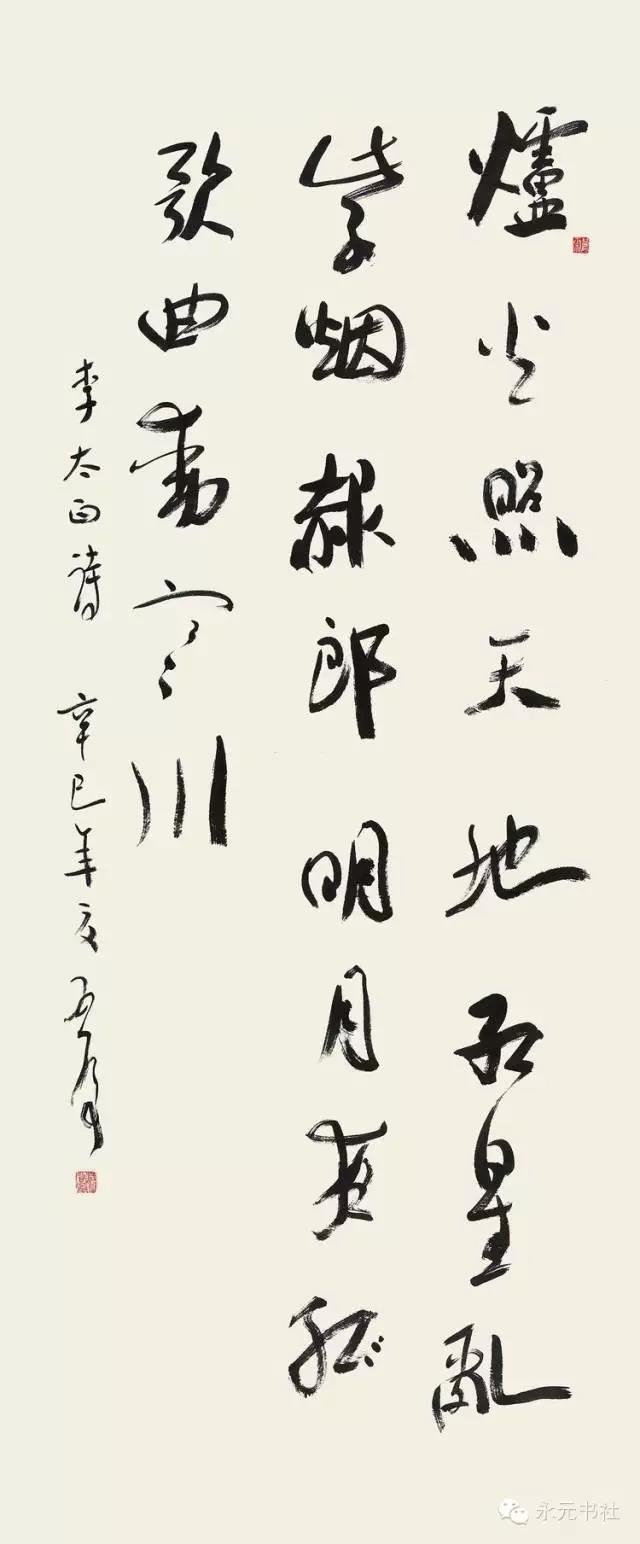 爐火照天地紅星亂
紫烟赧郎明月夜
歌曲動寒川
李太白詩 辛巳年夏
永元书社